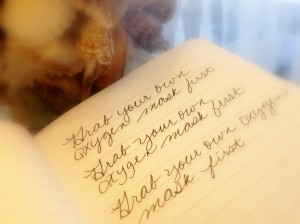 Grab your own
oxygen mask first
Grab your own
oxygen mask first
Grab your own oxygen
mask first